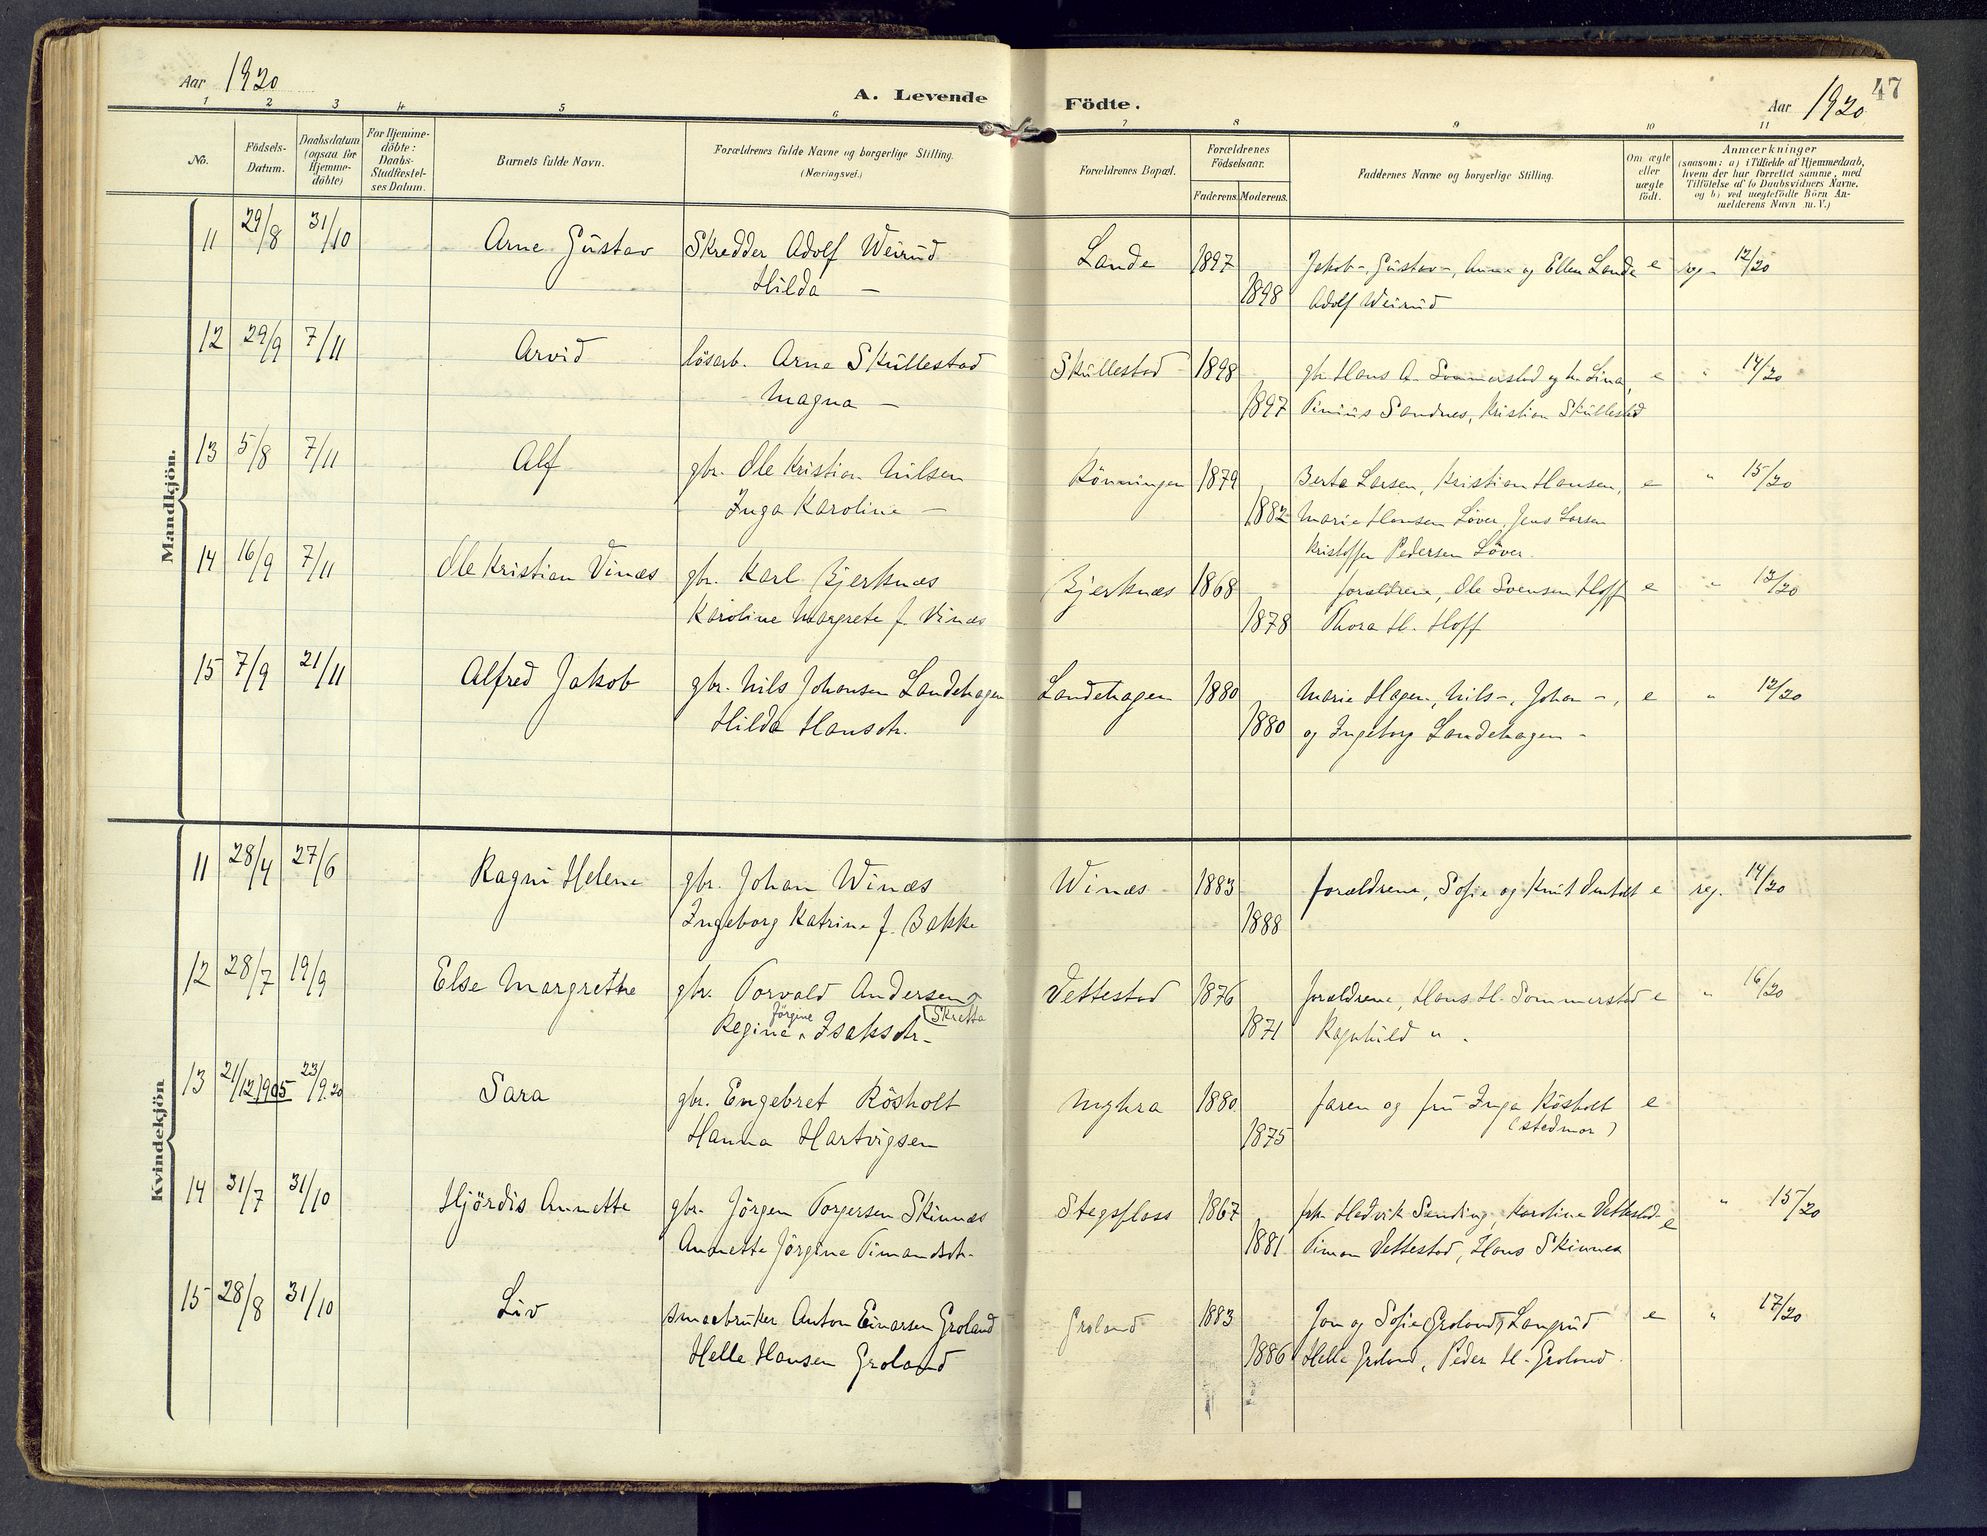 Aar 1920
A. Levende Födte.
Aar 1920
47
1 2 3 4 5 6 7 8 9 10 11
No.
Födsels-
Datum.
Daabsdatum
(ogsaa for
Hjemme-
döbte)
For Hjemme-
döbte:
Daabs-
Stadfæstel-
ses Datum.
Barnets fulde Navn.
Forældrenes fulde Navne og borgerlige Stilling.
(Næringsvei.)
Forældrenes Bopæl.
Forældrenes
Födselsaar.
Faderens. Moderens.
Faddernes Navne og borgerlige Stilling.
Om ægte
eller
uægte
födt.
Anmærkninger
(saasom: a) i Tilfælde af Hjemmedaab,
hvem der har forrettet samme, med
Tilföielse af to Daabsvidners Navne,
og b) ved uægtefödte Börn An-
melderens Navn m. V.)
Mandkjön.
11 29/8 31/10 Arne Gustav Skredder Adolf Weirud Lande 1897 Jakob-, Gustav-, Anna og Ellen Lande e reg. 12/20
Hilda — 1898 Adolf Weirud
12 29/9 7/11 Arvid lösarb. Arne Skullestad Skullestad 1898 gbr. Hans A. Sommerstad og h. Lina, e " 14/20
Magna — 1897 Tinius Sandnes, Kristian Skullestad
13 5/8 7/11 Alf gbr. Ole Kristian Nilsen Rönningen 1879 Berta Larsen, Kristian Hansen, e " 15/20
Inga Karoline — 1882 Marie Hansen Löver, Jens Larsen
Kristoffer Pedersen Löver.
14 16/9 7/11 Ole Kristian Vinæs gbr. Karl Bjerknæs Bjerknæs 1868 forældrene, Ole Svensen Hoff e " 13/20
Karoline Margrete f. Vinæs 1878 Thora H. Hoff
15 7/9 21/11 Alfred Jakob gbr. Nils Johansen Landehagen Landehagen 1880 Marie Hagen, Nils-, Johan-, e " 12/20
Hilda Hansdtr. 1880 og Ingeborg Landehagen -
Kvindekjön
11 28/4 27/6 Ragni Helene gbr. Johan Winæs Winæs 1883 forældrene, Sofie og Knut e reg. 14/20
Ingeborg Katrine f. Bakke 1888
12 28/7 19/9 Else Margrethe gbr. Torvald Andersen Vettestad 1876 forældrene, Hans H. Sommerstad e " 16/20
Regine Jörgine Isaksdtr. (Skretta 1871 Ragnhild " .
13 21/12 1905 23/9.20 Sara gbr. Engebret Rösholt Myhra 1880 faren og fru Inga Rösholt e
Hanna Hartvigsen 1875 (stedmor)
14 31/7 31/10 Hjördis Annette gbr. Jörgen Torgersen Skinnæs Stegsflass 1867 frk. Hedvik Sanding, Karoline Vettestad e " 15/20
Annette Jörgine Timandsdtr. 1881 Timan Vettestad, Hans Skinnes
15 28/8 31/10 Liv smaabruker Anton Einarsen Groland Groland 1883 Jon og Sofie (Groland) Langrud e " 17/20
Helle Hansen Groland 1886 Helle Groland, Peder H. Groland.